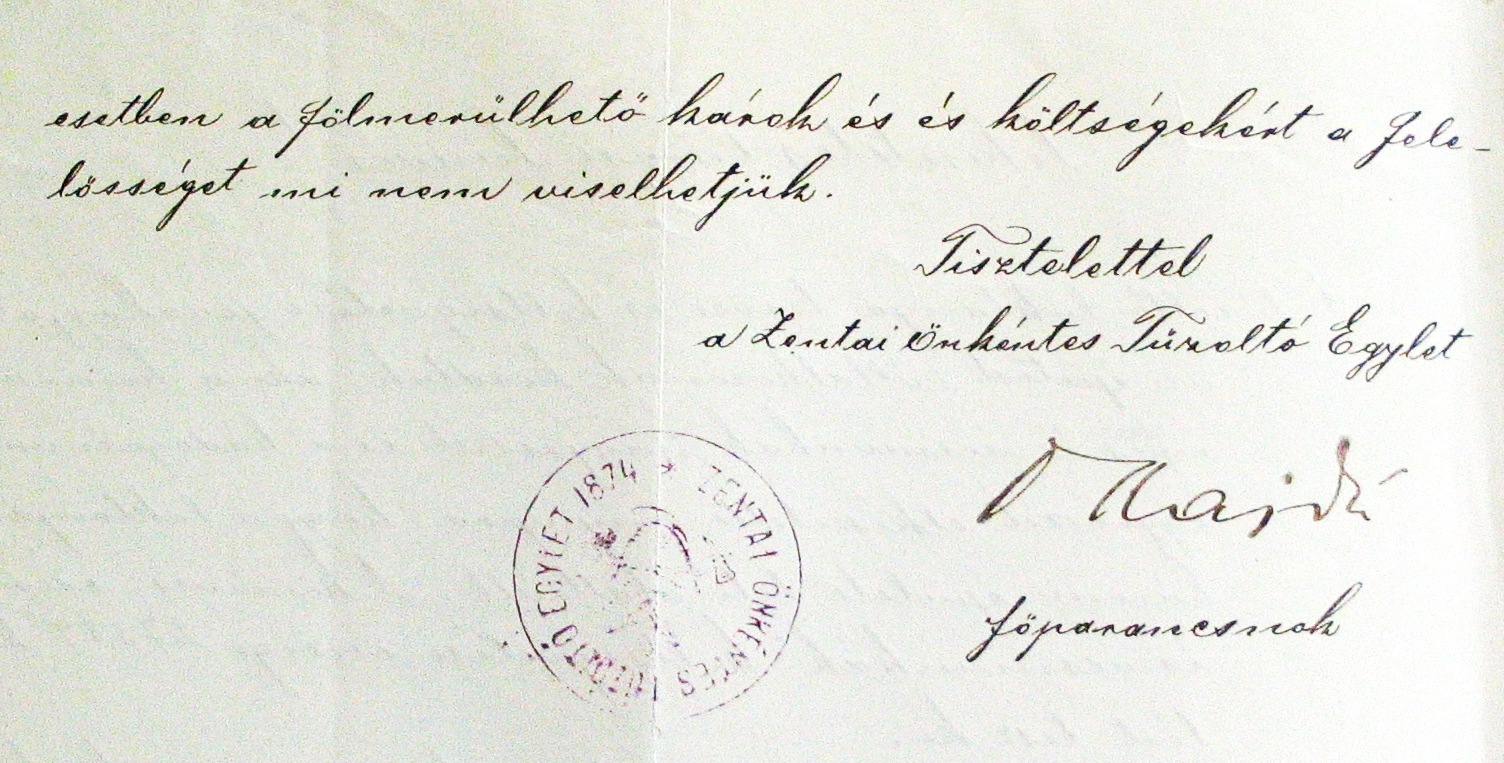 esetben a fölmerülhető károk és és költségekért a fele-
lősséget mi nem viselhetjük.
Tisztelettel
a Zentai Önkéntes Tűzoltó Egylet
Hajdú
főparancsnok
ZENTAI ÖNKÉNTES TŰZOLTÓ EGYLET 1874